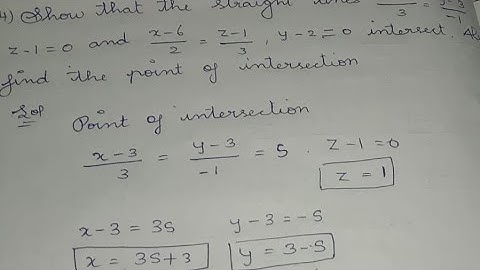 4) Show that the straight lines /3 = y-3/-1
z-1=0 and x-6/2 = z-1/3, y-2=0 intersect. Al
find the point of intersection
Sol Point of intersection
x-3/3 = y-3/-1 = S. z-1=0
z = 1
x-3 = 3S y-3 = -S
x = 3S+3 y = 3-S